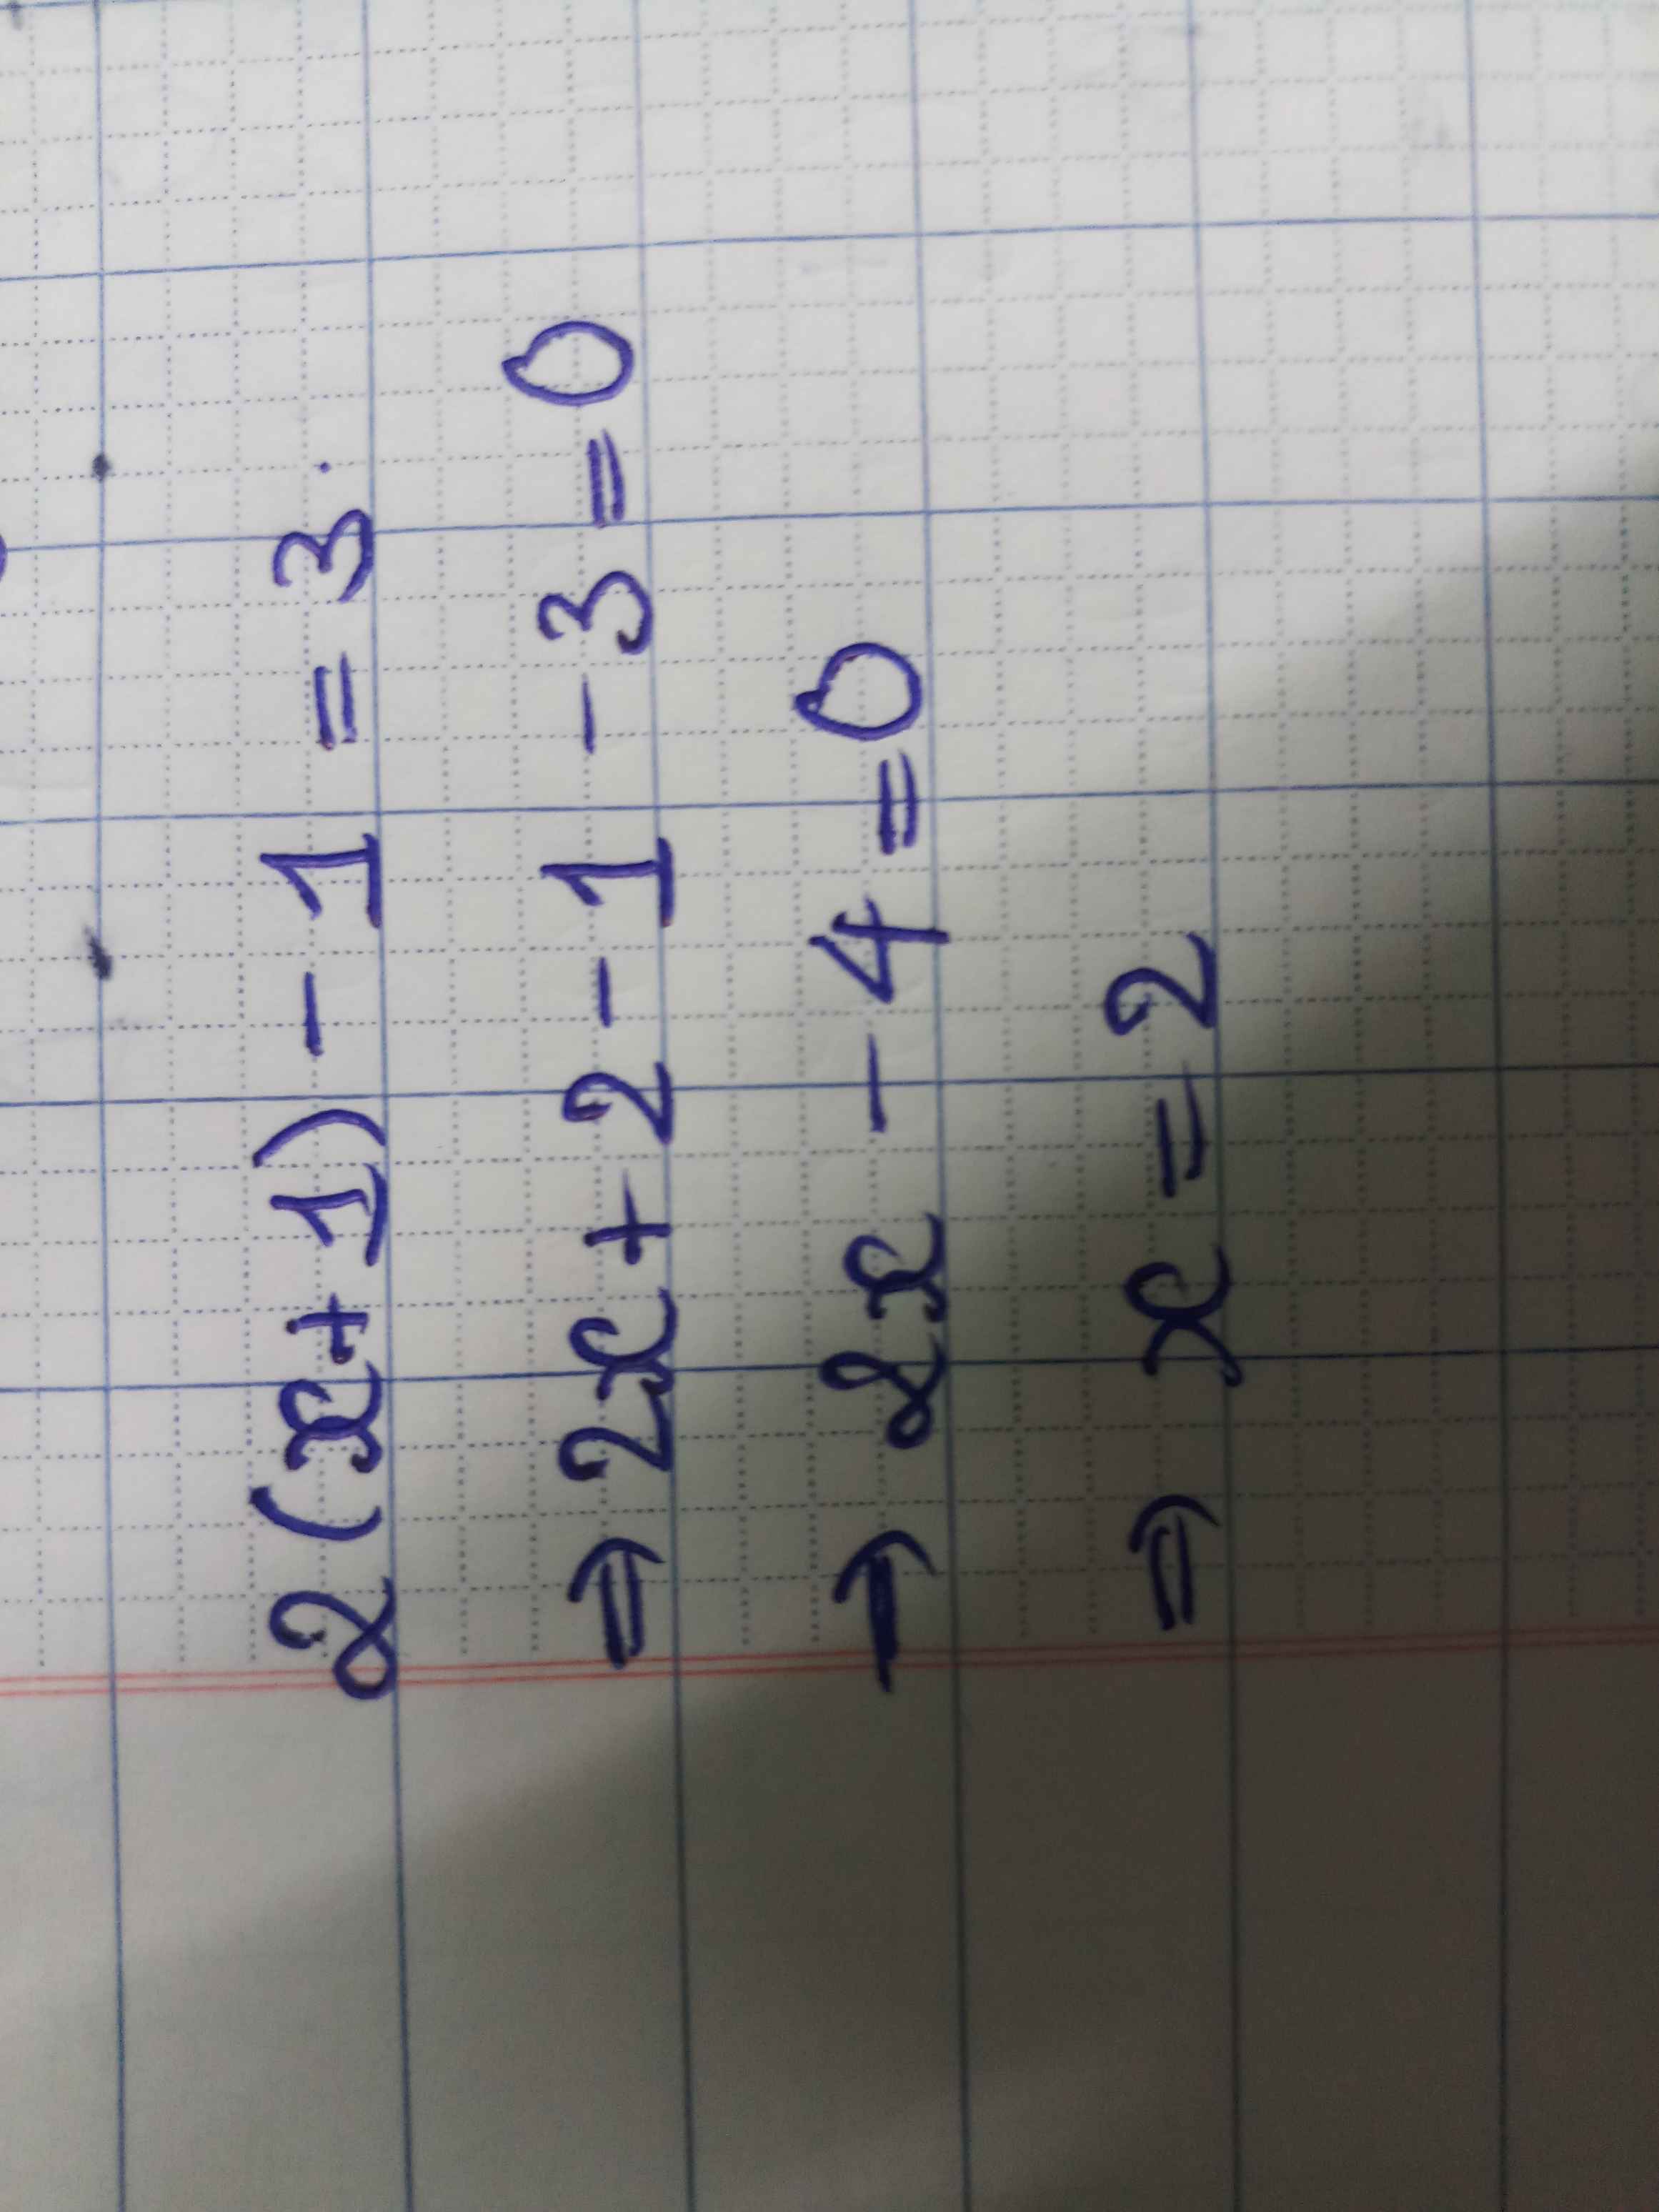 2(x+1) - 1 = 3.
⇒ 2x+2-1 -3=0
→ 2x - 4=0
⇒ x=2